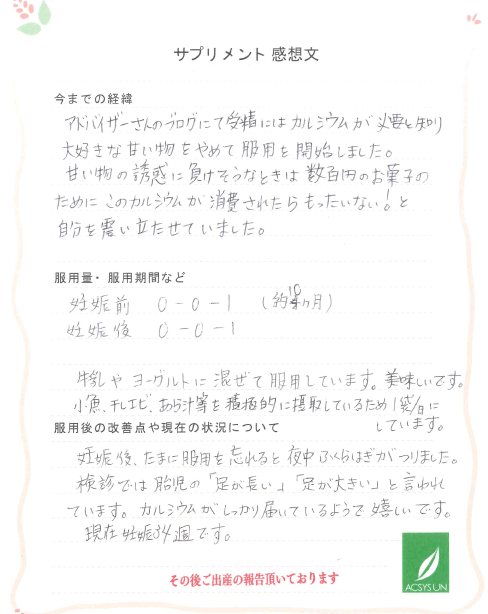 サプリメント 感想文
今までの経緯
アドバイザーさんのブログにて受精にはカルシウムが必要と知り
大好きな甘い物をやめて服用を開始しました。
甘い物の誘惑に負けそうなときは数百円のお菓子の
ためにこのカルシウムが消費されたらもったいない!と
自分を奮い立たせていました。
服用量・服用期間など
妊娠前 0-0-1 (約10ヶ月)
妊娠後 0-0-1
牛乳やヨーグルトに混ぜて服用しています。美味しいです。
小魚、干しエビ、あら汁等を積極的に摂取しているため1袋/日に
しています。
服用後の改善点や現在の状況について
妊娠後、たまに服用を忘れると夜中ふくらはぎがつりました。
検診では胎児の「足が長い」「足が大きい」と言われ
ています。カルシウムがしっかり届いているようで嬉しいです。
現在妊娠34週です。
その後ご出産の報告頂いております
ACSYSUN